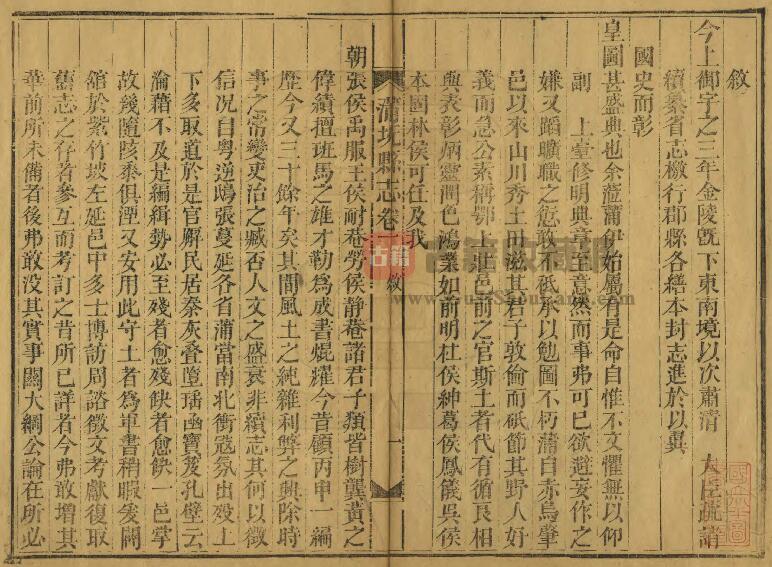 敘
今上御宇之三年金陵旣下東南境以次肅淸 大臣疏請
續纂省志檄行郡縣各繕本封志進於以異
國史而彰
皇圖甚盛典也余蒞蒲伊始屬有是命自惟不文懼無以仰
副 上室修明典章至意然而事弗可已欲避妄作之
嫌又蹈曠職之愆敢不祗承以勉圖不朽蒲自赤烏肇
邑以來山川秀土田滋其君子敦倫而砥節其野人好
義而急公素稱鄂上壯邑前之官斯土者代有循良相
與表彰炳靈潤色鴻業如前明杜侯紳葛侯鳳儀吳侯
本固林侯可任及我
蒲圻縣志卷一 敘 一
朝張侯禹服王侯耐菴勞侯靜菴諸君子類皆樹龔黃之
偉績擅班馬之雄才勒爲成書焜耀今昔顧丙申一編
歷今又三十餘年矣其間風土之純雜利弊之興除時
事之常變吏治之臧否人文之盛衰非續志其何以徵
信况自粵逆鴟張蔓延各省蒲當南北衝寇氛出歿上
下多取道於是官廨民居泰灰叠墮瑤函寶笈孔壁云
淪藉不及是編緝勢必至殘者愈殘缺者愈缺一邑掌
故幾隨陔黍俱湮又安用此守土者爲軍書稍暇爰開
舘於紫竹坡左延邑中多士博訪周諮徵文考獻復取
舊志之存者參互而考訂之昔所已詳者今弗敢增其
華前所未備者後弗敢没其實事關大綱公論在所必
古籍